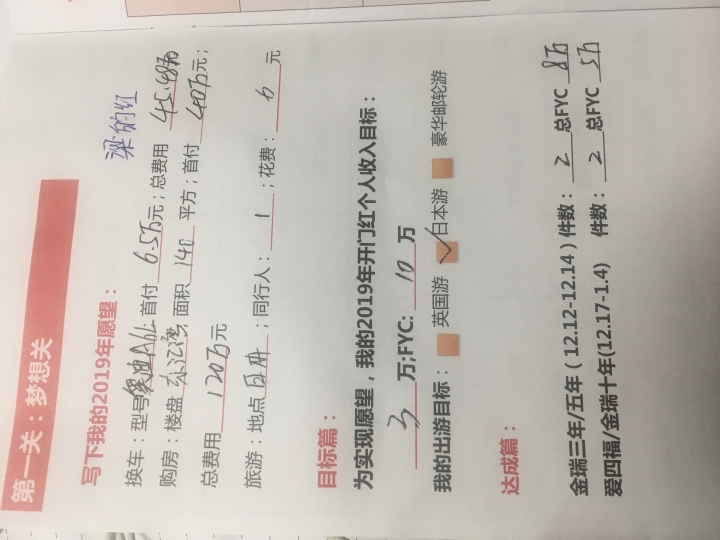 第一关：梦想关
梁的红
写下我的2019年愿望：
换车：型号奥迪A6L 首付6.5万元；总费用45.48万
购房：楼盘东江湾 面积140平方；首付40万元；
总费用120万元
旅游：地点日本；同行人：1；花费：6元
目标篇：
为实现愿望，我的2019年开门红个人收入目标：
3万;FYC: 10万
我的出游目标： 英国游 ✓日本游 豪华邮轮游
达成篇：
金瑞三年/五年（12.12-12.14）件数：2总FYC 8万
爱四福/金瑞十年(12.17-1.4) 件数：2总FYC 5万